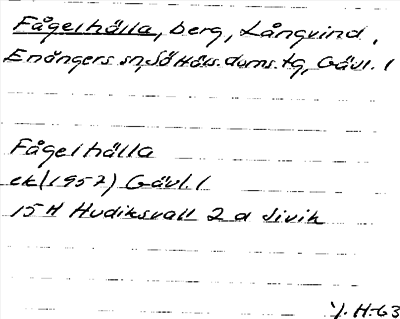 Fågelhälla, berg, Långvind,
Enångers sn, SöHäls. doms. tg, Gävl. l
Fågelhälla
ek (1957) Gävl. l
15H Hudiksvall 2 d Sivik
H-63